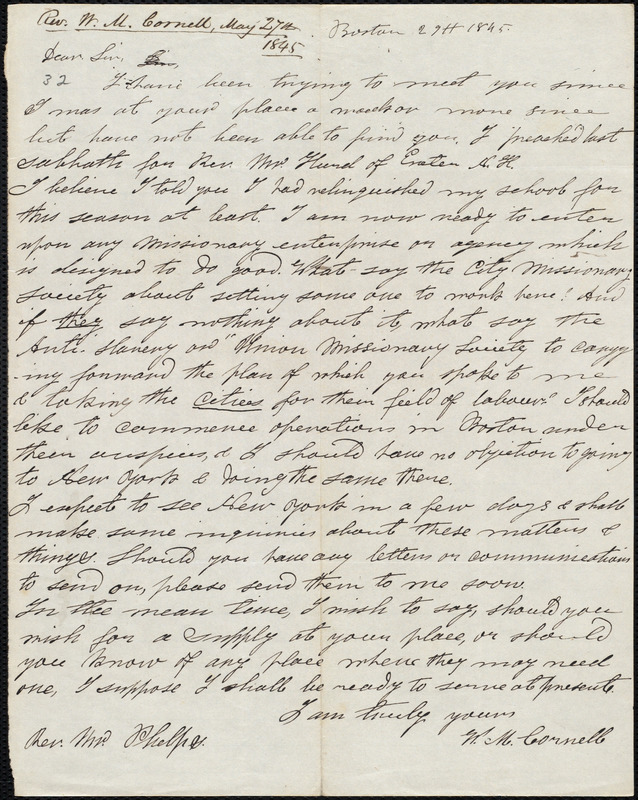 Rev. W. M. Cornell, May 27th
1845
Boston 29th 1845.
Dear Sir,
32 I have been trying to meet you since
I was at your place a week or more since
but have not been able to find you. I preached last
sabbath for Rev. Mr Hurd of Exeter N. H.
I believe I told you I had relinquished my school for
this season at least. I am now ready to enter
upon any Missionary enterprise or agency which
is designed to do good. What say the City Missionary
Society about setting some one to work here? And
if they say nothing about it, what say the
Anti. Slavery or "Union Missionary Society to carry-
ing forward the plan of which you spoke to me
& taking the Cities for their field of labour"? I should
like to commence operations in Boston under
their auspices, & I should have no objection to going
to New York & doing the same there.
I expect to see New York in a few days & shall
make some inquiries about these matters &
things. Should you have any letters or communications
to send on, please send them to me soon.
In the mean time, I wish to say, should you
wish for a supply at your place, or should
you know of any place where they may need
one, I suppose I shall be ready to serve at present.
I am truly yours
Rev. Mr. Phelps. W. M. Cornell